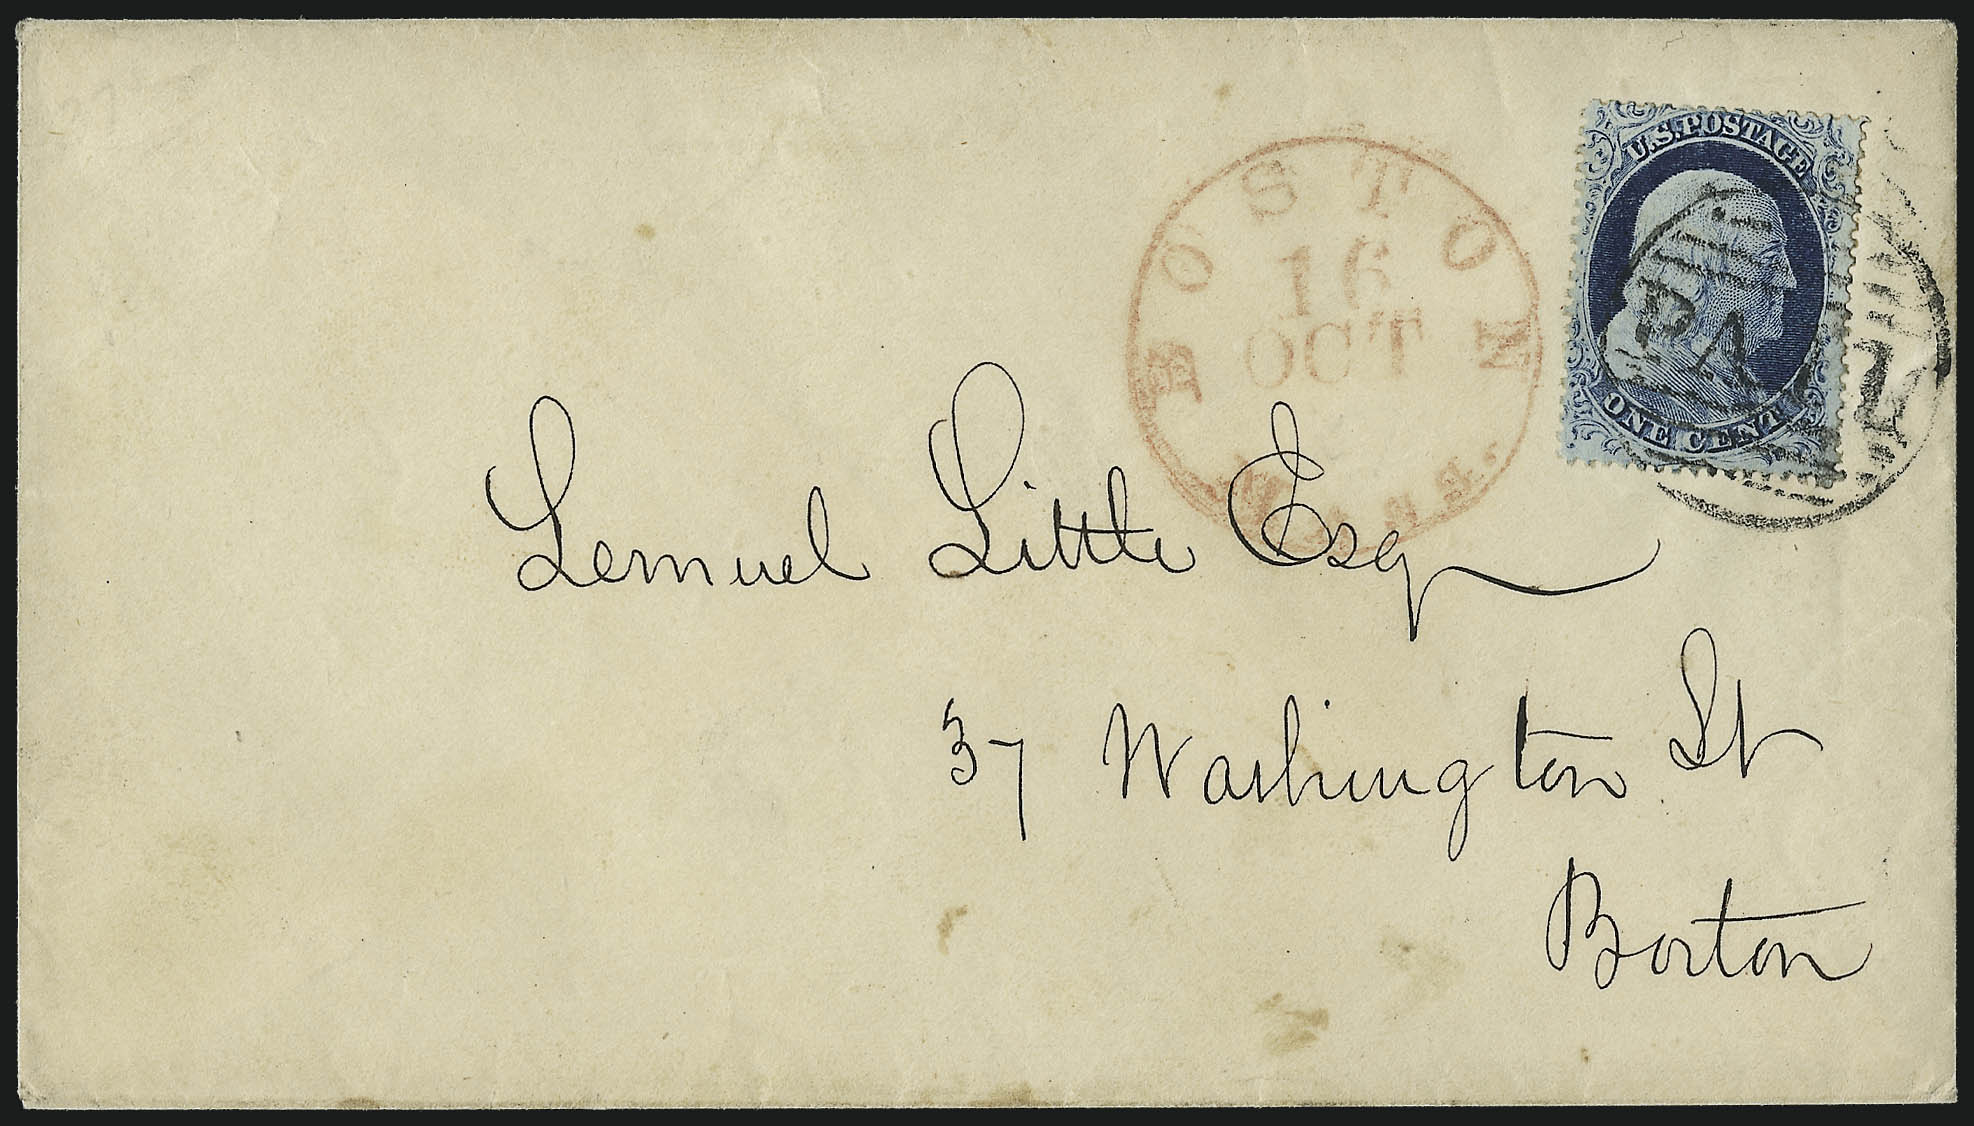 U.S. POSTAGE
ONE CENT
PA
BOSTON
16
OCT
MASS.
Lemuel Little Esq
37 Washington St
Boston